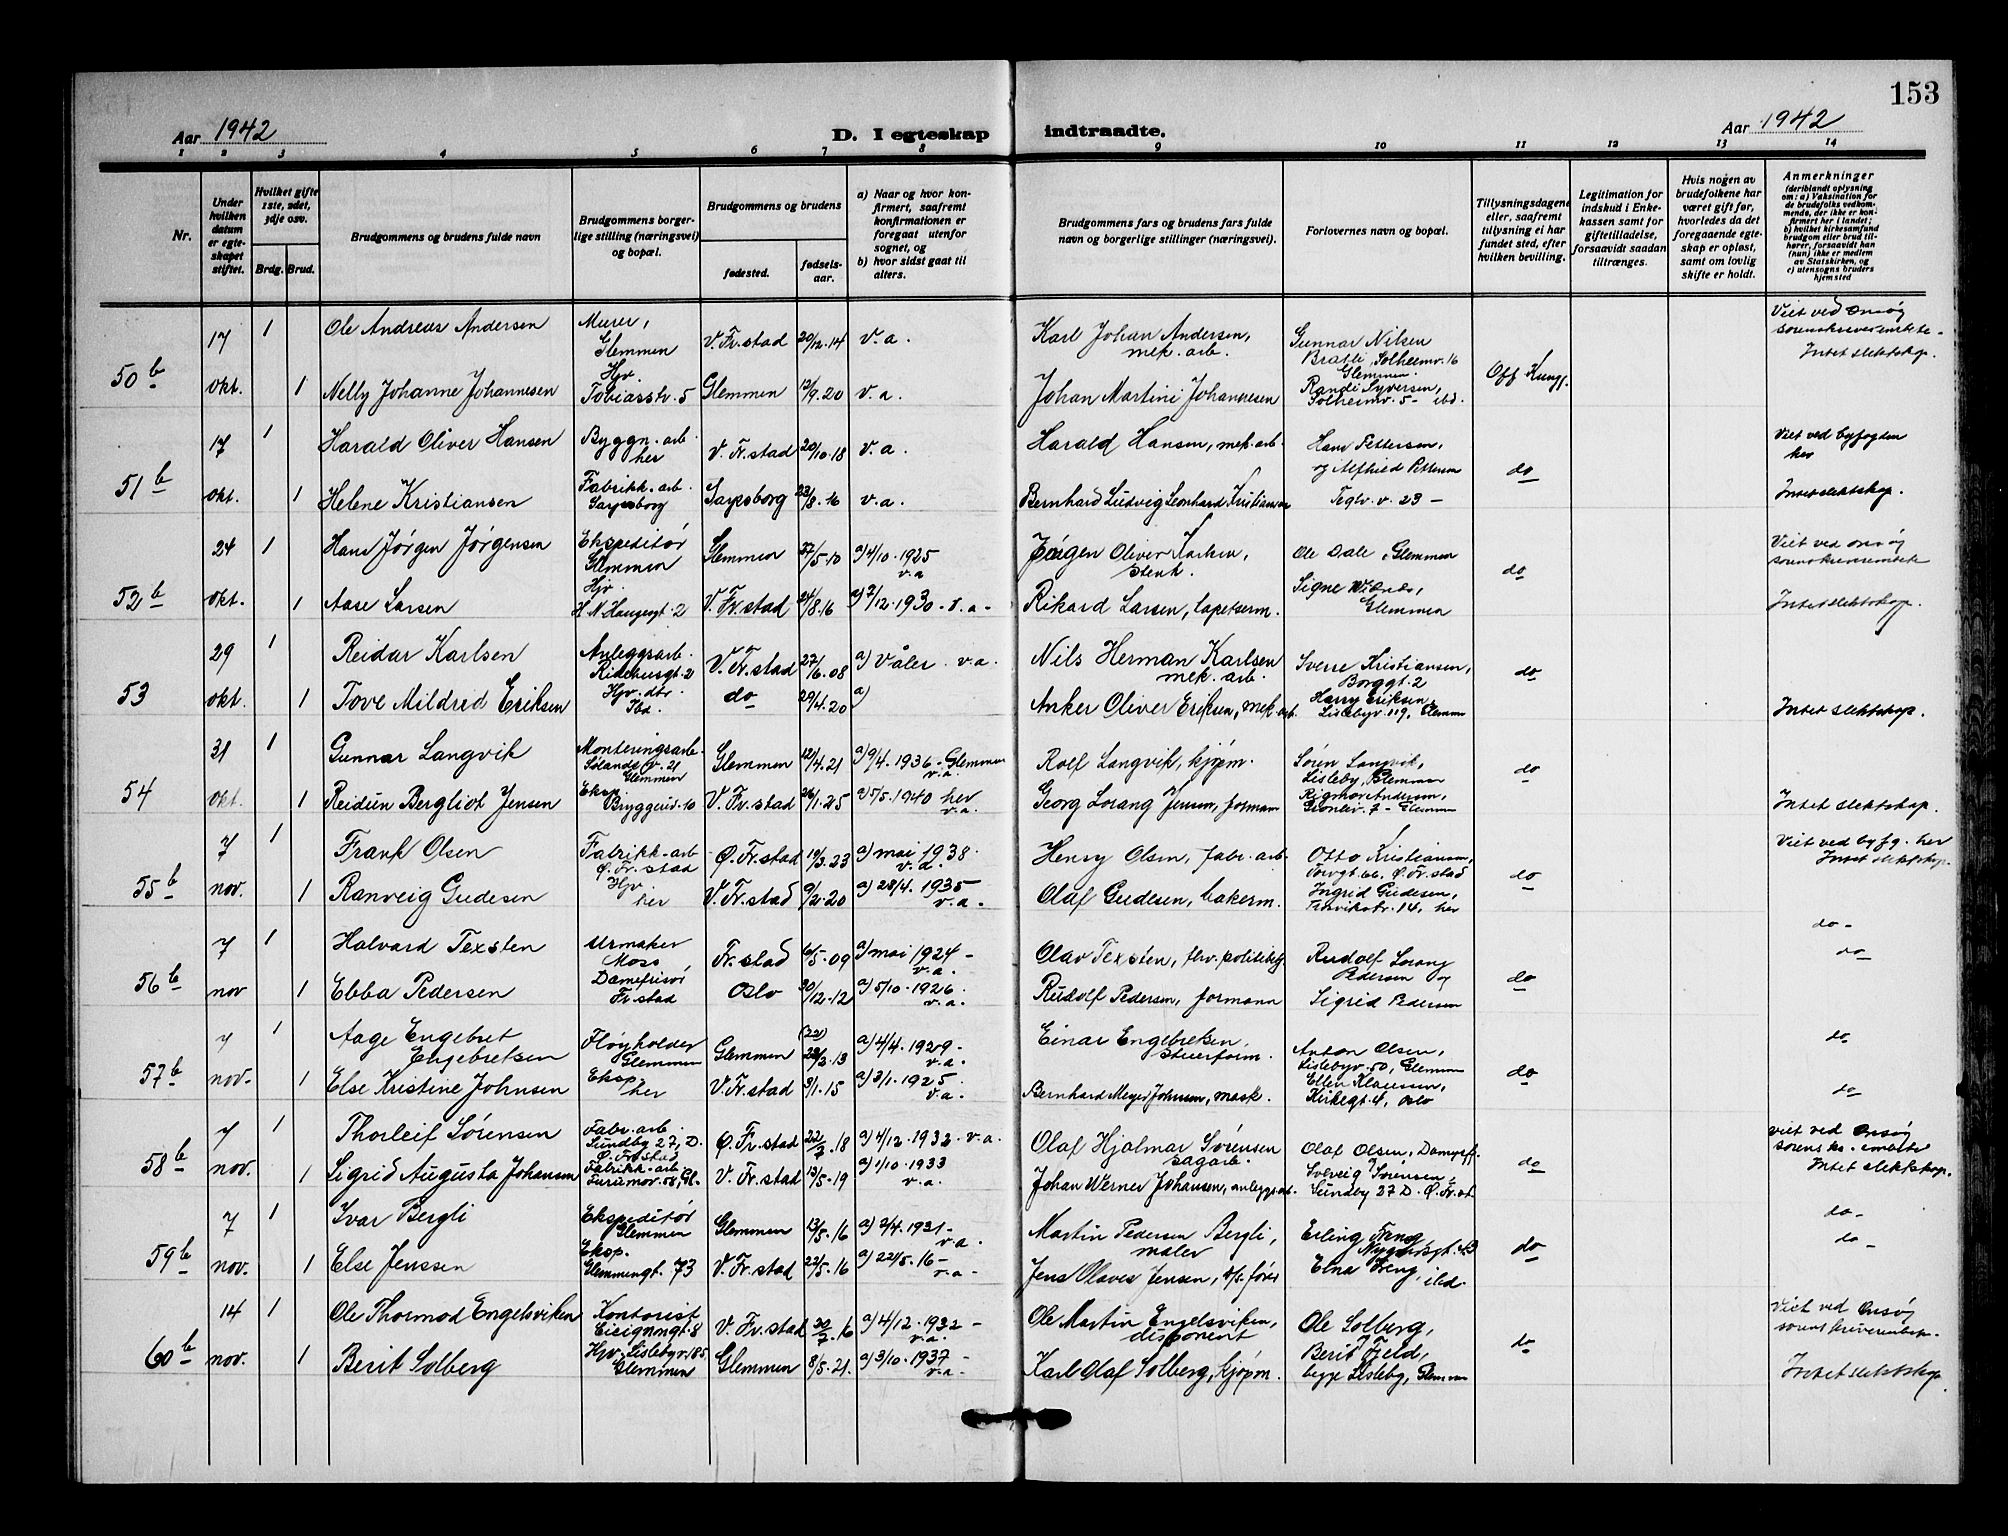 153
Aar 1942
D. I egteskap indtraadte.
Aar 1942
1 2 3 4 5 6 7 8 9 10 11 12 13 14
Nr.
Under hvilken datum er egteskapet stiftet.
Hvilket gifte 1ste, 2det, 3dje osv.
Brdg. Brud.
Brudgommens og brudens fulde navn
Brudgommens borgerlige stilling (næringsvei) og bopæl.
Brudgommens og brudens
fødested.
fødselsaar.
a) Naar og hvor konfirmert, saafremt konfirmationen er foregaat utenfor sognet, og
b) hvor sidst gaat til alters.
Brudgommens fars og brudens fars fulde navn og borgerlige stillinger (næringsvei).
Forlovernes navn og bopæl.
Tillysningsdagene eller, saafremt tillysning ei har fundet sted, efter hvilken bevilling.
Legitimation for indskud i Enkekassen samt for giftetilladelse, forsaavidt saadan tiltrænges.
Hvis nogen av brudefolkene har været gift før, hvorledes da det foregaaende egteskap er opløst, samt om lovlig skifte er holdt.
Anmerkninger
(deriblandt oplysning om: a) Vaksination for de brudefolks vedkommende, der ikke er konfirmert her i landet; b) hvilket kirkesamfund brudgom eller brud tilhører, forsaavidt han (hun) ikke er medlem av Statskirken, og c) utensogns bruders hjemsted
50 b 17 okt.
1 Ole Andreas Andersen Murer, Glemmen V. Fr.stad 20/12.14 v.a. Karl Johan Andersen, mek. arb. Gunnar Nilsen Bratli, Solheimv. 16 Glemmen.
1 Nelly Johanne Johannesen Hjv. Tobiassh. 5 Glemmen 12/9.20 v.a. Johan Martini Johannesen Randi Syversen, Solheimv. 5 - ibd.
Off. Kung.
Viet ved Onsøy sorenskriverembete. Intet slektskap.
51 b 17 okt.
1 Harald Oliver Hansen Byggn. arb. her V. Fr.stad 20/10.18 v.a. Harald Hansen, mek. arb. Hans Pettersen,
1 Helene Kristiansen Fabrikk. arb. Sarpsborg Sarpsborg 23/8.16 v.a. Bernhard Ludvig Leonhard Kristiansen og Alfhild Pettersen Teglv. v. 23 -
do
Viet ved byfogden her Intet slektskap.
52 b 24 okt.
1 Hans Jørgen Jørgensen Ekspeditør Glemmen Glemmen 27/5.10 a) 4/10.1925 v.a Jørgen Oliver Karlsen, stenh. Ole Dale, Glemmen
1 Aase Larsen Hjv. H. N. Haugesgt. 2 V. Fr.stad 24/8.16 a) 7/12.1930 - v.a - Rikard Larsen, tapetserm. Signe Glemmen
do
Viet ved Onsøy sorenskriverembete Intet slektskap.
53 29 okt.
1 Reidar Karlsen Anleggsarb. Ridehusgt. 2 V. Fr.stad 27/6.08 a) Våler. v.a. Nils Herman Karlsen mek. arb. Sverre Kristiansen, Borggt. 2
1 Tove Mildred Eriksen Hjv. dtr. Ibd. do 29/4.20 a) Anker Oliver Eriksen, mek. arb. Harry Eriksen, Lislebyv. 119, Glemmen
do
Intet slektskap.
54 31 okt.
1 Gunnar Langvik Monteringsarb. v. 21 Glemmen Glemmen 12/4.21 a) 9/4.1936 - Glemmen v.a. Rolf Langvik, kjøpm. Søren Langvik, Lisleby, Glemmen
1 Reidun Bergliot Jensen Eksp. Bryggeris. 10 V. Fr.stad 26/1.25 a) 5/5.1940 her v.a. Georg Lorang Jensen, formann Rigmor Andersen, 7 - Glemmen
do
Intet slektskap.
55 b 7 nov.
1 Frank Olsen Fabrikk. arb Ø. Fr.stad Ø. Fr.stad 19/3.23 a) mai 1938. v.a. Henry Olsen, fabr. arb. Otto Kristiansen, Torvgt. 66, Ø. Fr.stad
1 Ranveig Gudesen Hjv her V. Fr.stad 9/2.20 a) 28/4.1935 v.a. Olaf Gudesen, bakerm. Ingrid Gudesen, 14, her
do
Viet ved byfg. her Intet slektskap.
do -
56 b 7 nov
1 Halvard Texsten Urmaker Moss Fr.stad 6/5.09 a) mai 1924 - v.a. Olav Texsten, politibtj. Rudolf Lorang Pedersen og
1 Ebba Pedersen Damefrisør Fr.stad Oslo 20/12.12 a) 5/10.1926. v.a. Rudolf Pedersen, formann Sigrid Pedersen
do
do
57 b 7 nov.
1 Aage Engebret Engebretsen Fløyholder Glemmen Glemmen (22) 28/3.13 a) 4/4.1929 - v.a. Einar Engebretsen, stuerform. Anton Olsen, Lislebyv. 50, Glemmen
1 Else Kristine Johnsen Eksp. her V. Fr.stad 9/1.15 a) 3/1.1925. v.a. Bernhard Meyer Johnsen, mask. Ellen Klaussen, Kirkegt. 4, Oslo
do
do
do
58 b 7 nov.
1 Thorleif Sørensen Fabr. arb. Sundby 27, D. Ø. Fr.stad Ø. Fr.stad 22/7.18 a) 4/12.1932. v.a. Olaf Hjalmar Sørensen sagarb. Olaf Olsen, Dampff.
1 Sigrid Augusta Johansen Fabrikk. arb. Furumov. 58, Gl. V. Fr.stad 13/5.19 a) 1/10.1933 v.a. Johan Werner Johansen, anleggsarb. Solveig Sørensen, Sundby 27 D. Ø. Fr.st.
do
Viet ved Onsøy sorenskr. embete Intet slektskap.
59 b 7 nov.
1 Ivar Bergli Ekspeditør Glemmen Glemmen 13/5.16 a) 2/4.1931 - v.a. Martin Pedersen Bergli, maler Erling Freng Nygårdsgt. 43
1 Else Jenssen Eksp. Glemmengt. 73 V. Fr.stad 22/5.16 a) 22/5.16 - v.a - Jens Olaves Jensen, fører Elna Freng, ibd.
do
do -
do -
60 b 14 nov.
1 Ole Thormod Engelsviken Kontorist 8 V. Fr.stad 20/7.16 a) 4/12.1932 - v.a. Ole Martin Engelsviken, disponent Ole Solberg,
1 Berit Solberg Hjv. Lislebyv. 185, Glemmen Glemmen 8/5.21. a) 3/10.1937 - v.a. Karl Olaf Solberg, kjøpm. Berit Fjeld, begge Lisleby, Glemmen
do
Viet ved Onsøy sorenskriverembete. Intet slektskap.